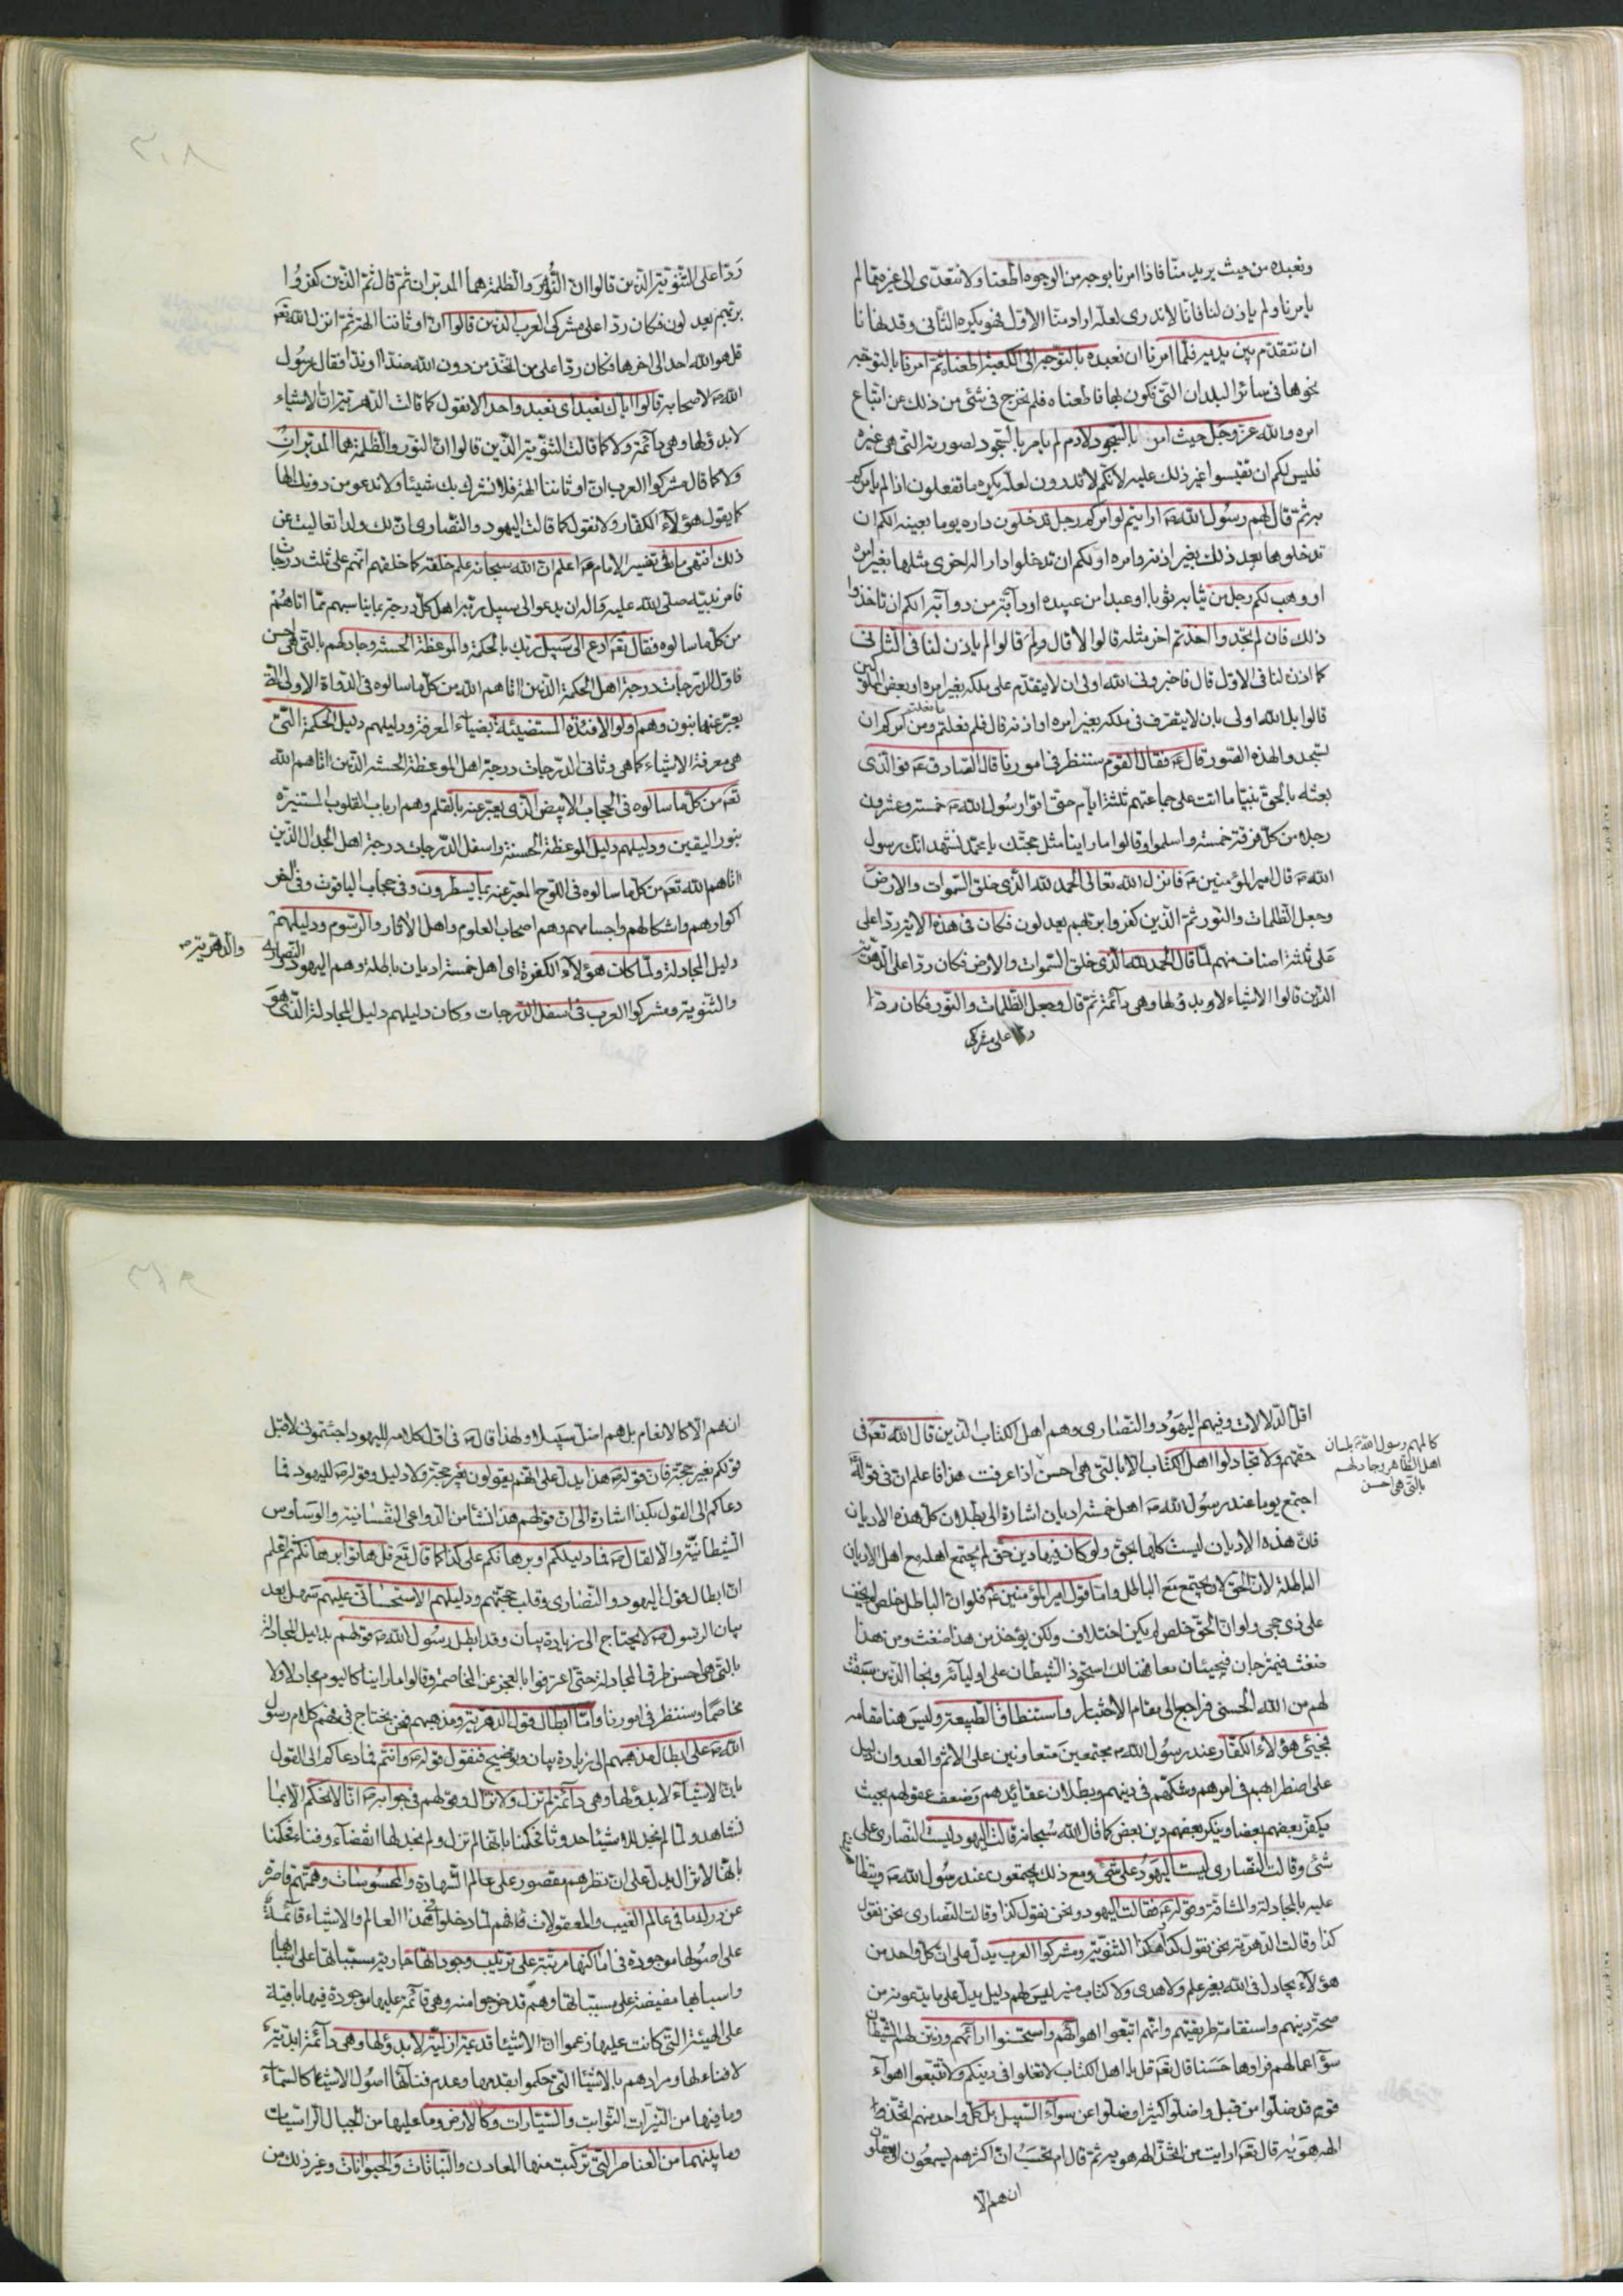 ونعبده من حيث يريد منا فاذا امرنا بوجه من الوجوه اطعنا ولا نتعدى الى غيره مما لم
يامرنا ولم ياذن لنا فانا لا ندرى لعله اراد منا الاول فهو يكره الثانى وقد نهانا
ان نتقدم بين يديه فلما امرنا ان نعبده بالتوجه الى الكعبة اطعناه ثم امرنا بالتوجه
نحوها فى سائر البلدان التى نكون بها فاطعناه فلم نخرج فى شئى من ذلك عن اتباع
امره والله عز وجل حيث امر بالسجود لادم لم يامر بالسجود لصورته التى هى غيره
فليس لكم ان تقيسوا غير ذلك عليه لانكم لا تدرون لعله يكره ما تفعلون اذا لم يامركم
به ثم قال لهم رسول الله ص ارايتم لو امركم رجل تدخلون داره يوما بعينه الكم ان
تدخلوها بعد ذلك بغير اذنه وامره او لكم ان تدخلوا دارا له اخرى مثلها بغير امره
او وهب لكم رجل من ثيابه ثوبا او عبدا من عبيده او دآبة من دوآبه الكم ان تاخذوا
ذلك فان لم تجدوا اخذتم اخر مثله قالوا لا قال ولم قالوا لم ياذن لنا فى الثانى
كما اذن لنا فى الاول قال فاخبرونى الله اولى ان لا يتقدم على ملكه بغير امره او بعض المملوكين
قالوا بل الله اولى بان لا يتصرف فى ملكه بغير امره او اذنه قال فلم فعلتم ومن امركم ان
تسجدوا لهذه الصور قال ع فقال القوم سننظر فى امورنا قال الصادق ع فوالذى
بعثه بالحق نبيا ما اتت على جماعتهم ثلثة ايام حتى اتوا رسول الله ص خمسة وعشرون
رجلا من كل فرقة خمسة واسلموا وقالوا ما راينا مثل حجتك يا محمد نشهد انك رسول
الله ص قال امير المؤمنين ع فانزل الله تعالى الحمد لله الذى خلق السموات والارض
وجعل الظلمات والنور ثم الذين كفروا بربهم يعدلون فكان فى هذه الاية رد على
على ثلثة اصناف منهم لما قال الحمد لله الذى خلق السموات والارض فكان ردا على الدهرية
الذين قالوا الاشياء لا بدؤ لها وهى دآئمة ثم قال وجعل الظلمات والنور فكان ردا
على مشركى
ردا على الثنوية الذين قالوا ان النور والظلمة هما المدبران ثم قال ثم الذين كفروا
بربهم يعدلون فكان ردا على مشركى العرب الذين قالوا ان اوثاننا الهة ثم انزل الله تع
قل هو الله احد الى اخرها فكان ردا على من اتخذ من دون الله ضدا او ندا فقال رسول
الله ص لاصحابه قالوا اياك نعبد اى نعبد واحدا لا نقول كما قالت الدهرية ان الاشياء
لا بدؤ لها وهى دآئمة ولا كما قالت الثنوية الذين قالوا ان النور والظلمة هما المدبران
ولا كما قال مشركوا العرب ان اوثاننا الهة فلا نشرك بك شيئا ولا ندعو من دونك الها
كما يقول هؤلآء الكفار ولا نقول كما قالت اليهود والنصارى ان لك ولدا تعاليت عن
ذلك انتهى ما فى تفسير الامام ع اعلم ان الله سبحانه علم خلقه كما خلقهم انهم على ثلث درجات
فامر نبيه صلى الله عليه واله ان يدعو الى سبيل ربه اهل كل درجة بما يناسبهم مما اتاهم
من كل ما سالوه فقال تع ادع الى سبيل ربك بالحكمة والموعظة الحسنة وجادلهم بالتى هى احسن
فاول الدرجات درجة اهل الحكمة الذين اتاهم الله من كل ما سالوه فى الدواة الاولى التى
يعبر عنها بنون وهم اولو الافئدة المستضيئة بضياء المعرفة ودليلهم دليل الحكمة التى
هى معرفة الاشياء كما هى وثانى الدرجات درجة اهل الموعظة الحسنة الذين اتاهم الله
تع من كل ما سالوه فى الحجاب الابيض الذى يعبر عنه بالقلم وهم ارباب القلوب المستنيرة
بنور اليقين ودليلهم دليل الموعظة الحسنة واسفل الدرجات درجة اهل الجدال الذين
اتاهم الله تع من كل ما سالوه فى اللوح المعبر عنه بما يسطرون وفى حجاب الياقوت وفى
اكوارهم واشكالهم واجسامهم وهم اصحاب العلوم واهل الاثار والرسوم ودليلهم
دليل المجادلة ولما كان هؤلآء الكفرة اى اهل خمسة اديان باطلة وهم اليهود والنصارى
والدهرية ص
والثنوية ومشركوا العرب فى اسفل الدرجات وكان دليلهم دليل المجادلة الذى هو
اقل الدلالات وفيهم اليهود والنصارى وهم اهل الكتاب الذين قال الله تع فى
حقهم ولا تجادلوا اهل الكتاب الا بالتى هى احسن اذا عرفت هذا فاعلم ان فى قوله
كالمهم رسول الله ص بلسان
اهل الظاهر وجادلهم
بالتى هى احسن
اجتمع يوما عند رسول الله ص اهل خمسة اديان اشارة الى بطلان كل هذه الاديان
فان هذه الاديان ليست كلها بحق ولو كان فيها دين حق لم يجتمع اهله مع اهل الاديان
الباطلة لان الحق لا يجتمع مع الباطل واما قول امير المؤمنين ع فلو ان الباطل خلص لم يخف
على ذى حجى ولو ان الحق خلص لم يكن اختلاف ولكن يؤخذ من هذا ضغث ومن هذا
ضغث فيمزجان فيجيئان معا فهنالك استحوذ الشيطان على اوليآئه ونجا الذين سبقت
لهم من الله الحسنى فراجع الى مقام الاختبار واستنطاق الطبيعة وليس هنا مقامه
فجيئى هؤلاء الكفار عند رسول الله ص مجتمعين متعاونين على الاثم والعدوان دليل
على اضطرابهم فى امرهم وشكهم فى دينهم وبطلان عقائدهم وضعف عقولهم بحيث
يكفر بعضهم بعضا وينكر بعضهم دين بعض كما قال الله سبحانه قالت اليهود ليست النصارى على
شئى وقالت النصارى ليست اليهود على شئى ومع ذلك يجتمعون عند رسول الله ص
عليه بالمجادلة والمشاقة وقوله ع فقالت اليهود نحن نقول كذا وقالت النصارى نحن نقول
كذا وقالت الدهرية نحن نقول كذا وهكذا الثنوية ومشركوا العرب يدل على ان كل واحد من
هؤلآء يجادل فى الله بغير علم ولا هدى ولا كتاب منير ليس لهم دليل يدل على ما يدعونه من
صحة دينهم واستقامة طريقتهم وانهم اتبعوا اهوائهم واستحسنوا ارائهم وزين لهم الشيطان
سوء اعمالهم فراوها حسنا قال تع قل يا اهل الكتاب لا تغلوا فى دينكم ولا تتبعوا اهوآء
قوم قد ضلوا من قبل واضلوا كثيرا وضلوا عن سوآء السبيل بل كل واحد منهم اتخذ
الهه هويه قال تع ارايت من اتخذ الهه هويه ثم قال ام تحسب ان اكثرهم يسمعون او يعقلون
ان هم الا
ان هم الا كالانعام بل هم اضل سبيلا ولهذا قال ص فى اول كلامه لليهود اجئتمونى لاقبل
قولكم بغير حجة فان قوله ص هذا يدل على انهم يقولون بغير حجة ولا دليل وقوله ص لليهود فما
دعاكم الى القول بكذا اشارة الى ان قولهم هذا نشأ من الدواعى النفسانية والوساوس
الشيطانية والا لقال ص فما دليلكم او برهانكم على كذا كما قال تع قل هاتوا برهانكم ثم اعلم
ان ابطال قول اليهود والنصارى وقلب حجتهم ودليلهم الاستحسانى عليهم سهل بعد
بيان الرسول ص لا يحتاج الى زيادة بيان وقد ابطل رسول الله ص قولهم بدليل المجادلة
بالتى هى احسن طرق المجادلة حتى اعترفوا بالعجز عن المخاصمة وقالوا ما راينا كاليوم مجادلا ولا
مخاصما وسننظر فى امورنا واما ابطال قول الدهرية ومذهبهم فنحن نحتاج فى فهم كلام رسول
الله ص على ابطال مذهبهم الى زيادة بيان وتوضيح فنقول قوله ص وانتم فما دعاكم الى القول
بان الاشيآء لا بدؤ لها وهى دآئمة لم تزل ولا تزال وقولهم فى جوابه ص انا لا نحكم الا بما
نشاهد ولما لم نجد للاشياء حدوثا فحكمنا بانها لم تزل ولم نجد لها انقضآء وفناء فحكمنا
بانها لا تزال يدل على ان نظرهم مقصور على عالم الشهادة والمحسوسات وهمتهم قاصرة
عن درك ما فى عالم الغيب والمعقولات فانهم لما دخلوا فى هذا العالم والاشياء قائمة
على اصولها موجودة فى اماكنها مرتبة على ترتيب وجوداتها جارية مسبباتها على اسبابها
واسبابها مفيضة على مسبباتها وهم قد خرجوا منه وهى قآئمة عليها موجودة فيها باقية
على الهيئة التى كانت عليها زعموا ان الاشيآء قديمة ازلية لا بدؤ لها وهى دآئمة ابدية
لا فناء لها ومرادهم بالاشيآء التى حكموا بقدمها وعدم فنآئها اصول الاشيآء كالسمآء
وما فيها من النيرات الثوابت والسيارات وكالارض وما عليها من الجبال الراسيات
وما بينهما من العناصر التى تركبت منها المعادن والنباتات والحيوانات وغير ذلك من